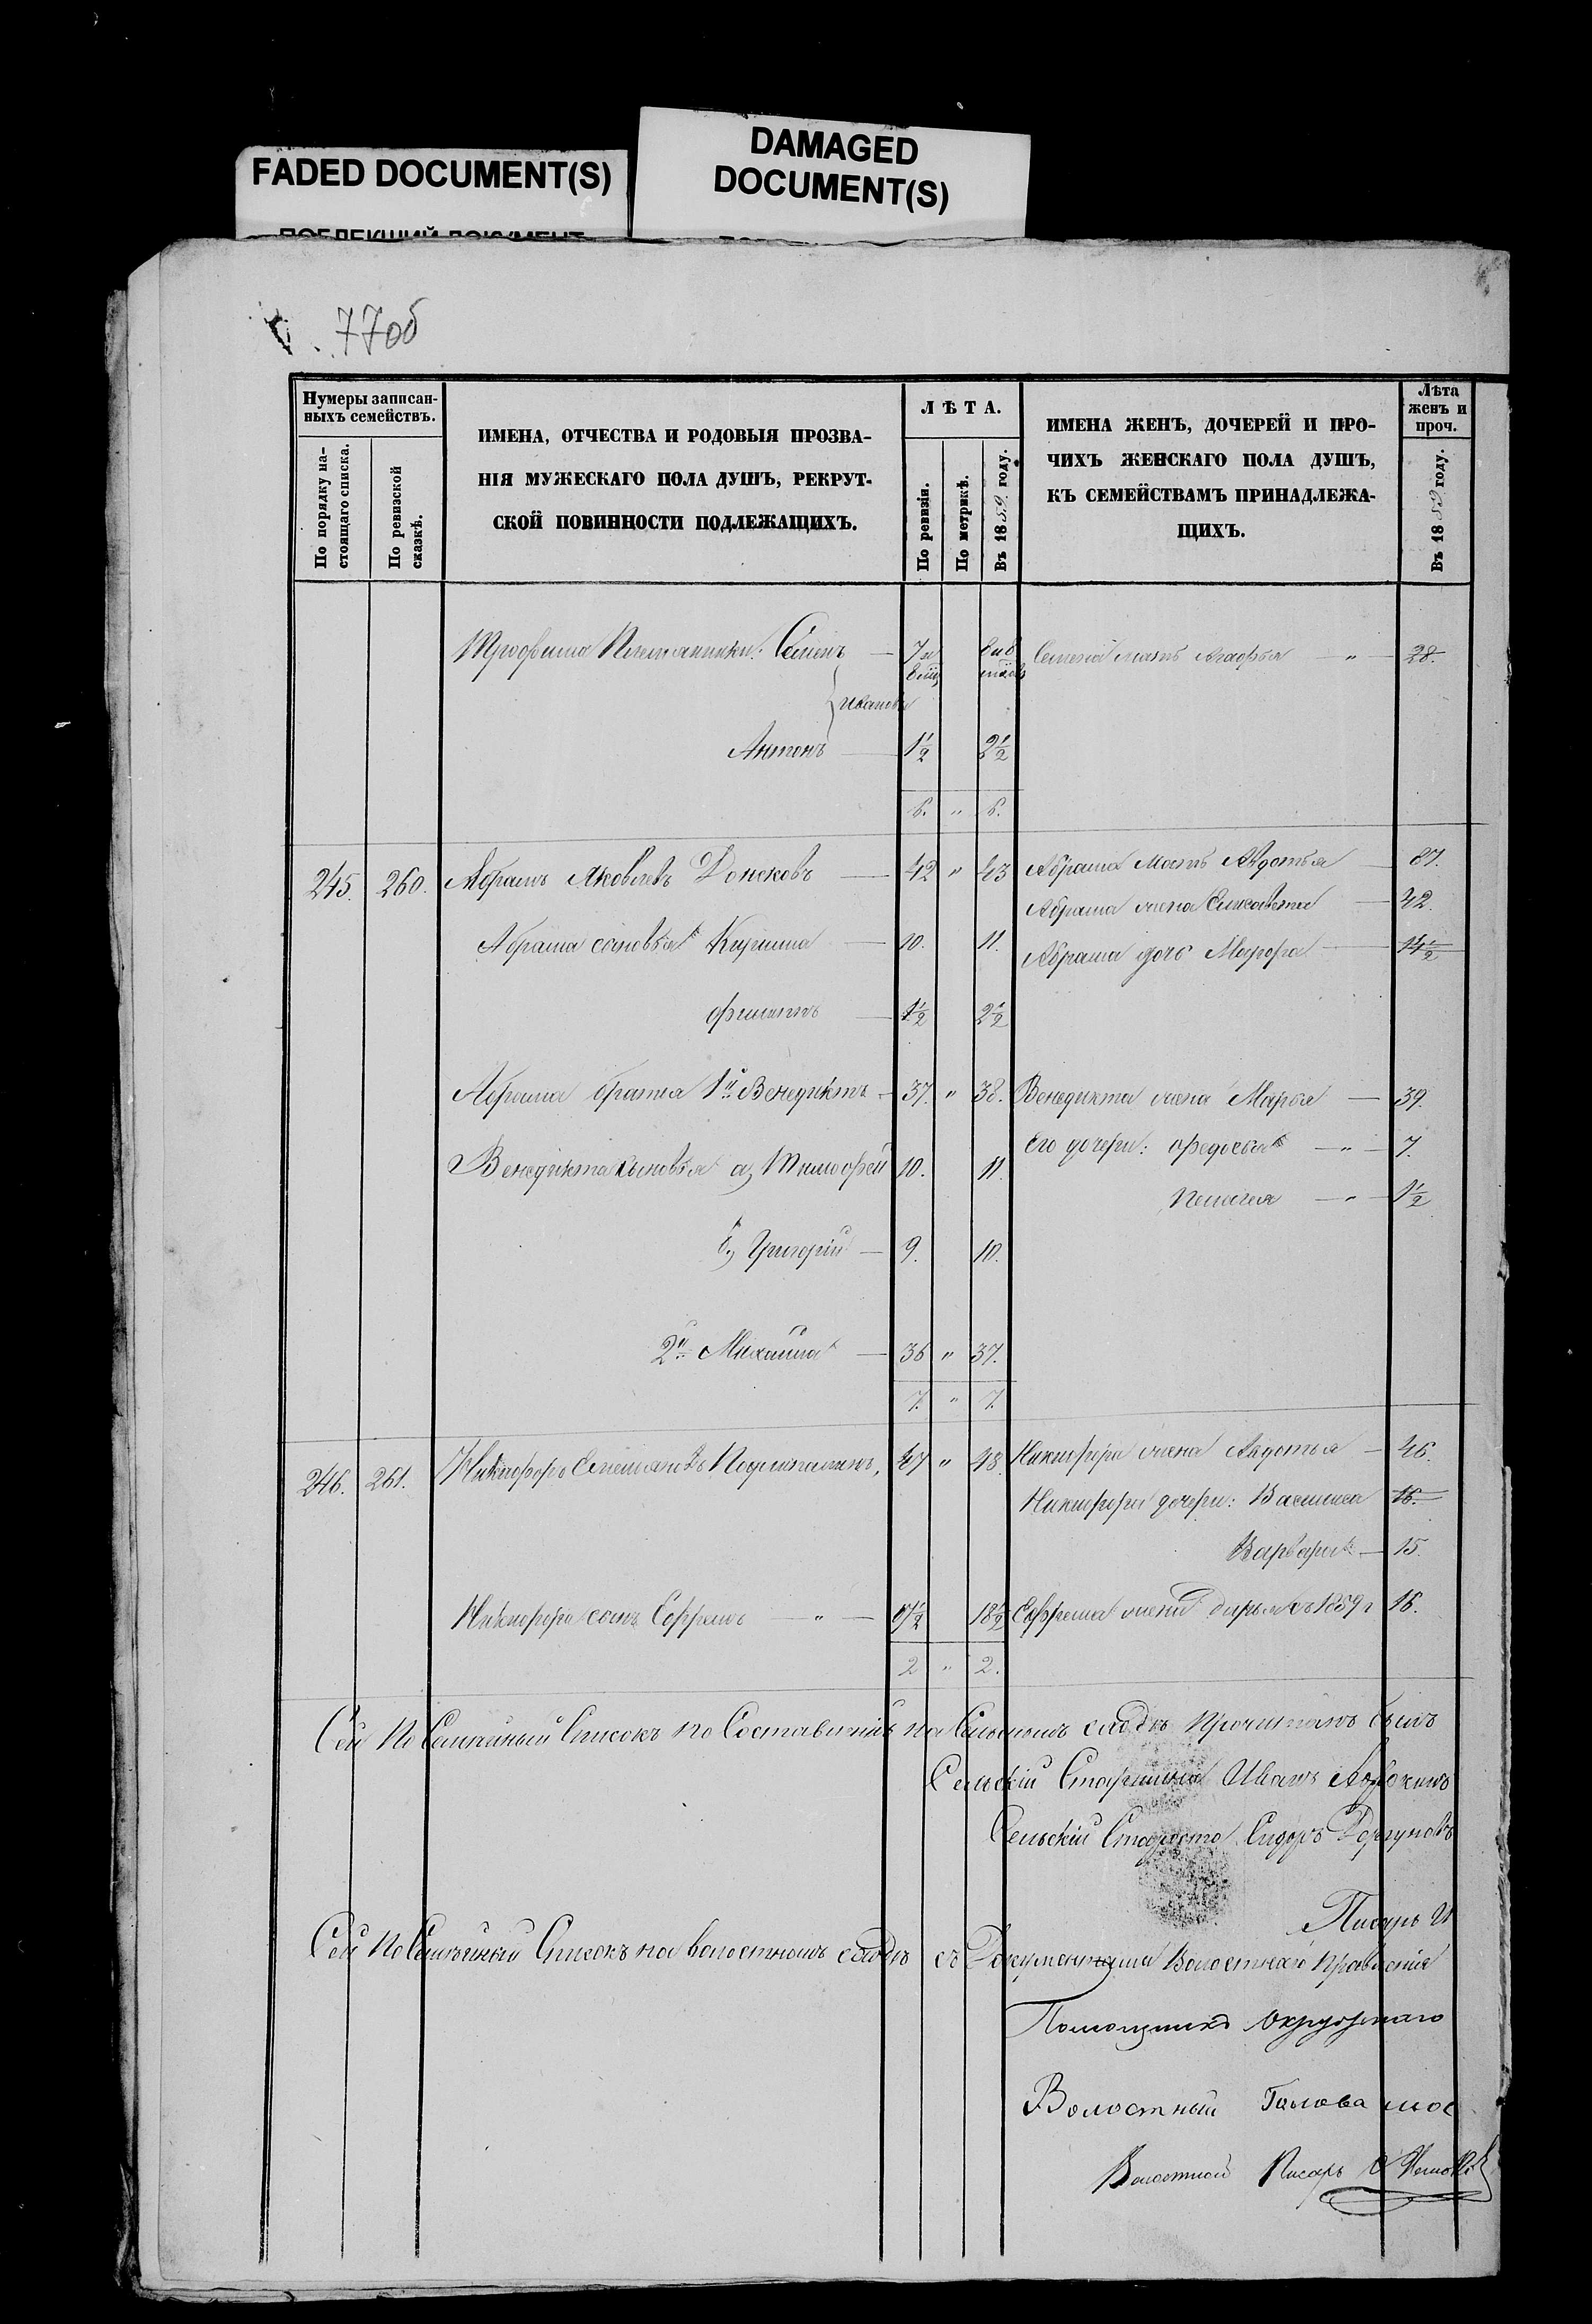 FADED DOCUMENT(S)
DAMAGED
DOCUMENT(S)
77об
Нумеры записан-
ныхъ семействъ.
По порядку на-
стоящаго списка.
По ревизской
сказкѣ.
ИМЕНА, ОТЧЕСТВА И РОДОВЫЯ ПРОЗВА-
НІЯ МУЖЕСКАГО ПОЛА ДУШЪ, РЕКРУТ-
СКОЙ ПОВИННОСТИ ПОДЛЕЖАЩИХЪ.
ЛѢТА.
По ревизіи.
По метрикѣ.
Въ 1859 году.
ИМЕНА ЖЕНЪ, ДОЧЕРЕЙ И ПРО-
ЧИХЪ ЖЕНСКАГО ПОЛА ДУШЪ,
КЪ СЕМЕЙСТВАМЪ ПРИНАДЛЕЖА-
ЩИХЪ.
Лѣта
женъ и
проч.
Въ 1859 году.
Трофима Племянники: Семенъ — Семена мать Агафья — „ — 28.
Ивановы
Антонъ — 1½ 2½
6. „ 6.
245. 260. Абрамъ Яковлевъ Донсковъ — 42 „ 43 Абрама мать Авдотья —
Абрама жена Елисавета — 42.
Абрама сыновья Кирила — 10. 11. Абрама дочь — 14½
Филипъ — 1½ 2½
Абрама братья 1й Венедиктъ — 37. „ 38. Венедикта жена Марья — 39.
Его дочери: Федосья — „ — 7.
Венедикта сыновья а) Тимофей 10. 11.
Пелагея — „ — 1½
б) Григорій — 9. 10.
2й Михаила — 36 „ 37.
7. „ 7.
246. 261. Никифоръ 47 „ 48. Никифора жена Авдотья — 46.
Никифора дочери: Василиса 16.
Варвара — 15.
Никифора сынъ Ефремъ — „ — 17½ 18½ Ефрема жена Дарья съ 1859 г 16.
2 „ 2.
Сей Посемейный Списокъ по Составленіи на Сельскомъ сходѣ прочитанъ былъ
Сельскій Старшина Иванъ
Сельскій Староста Сидоръ
Писарь И
Сей Посемейный Списокъ на волостномъ сходѣ съ Документами Волостнаго Правленія
Помощникъ Окружнаго
Волостный Голова
Волостной Писарь